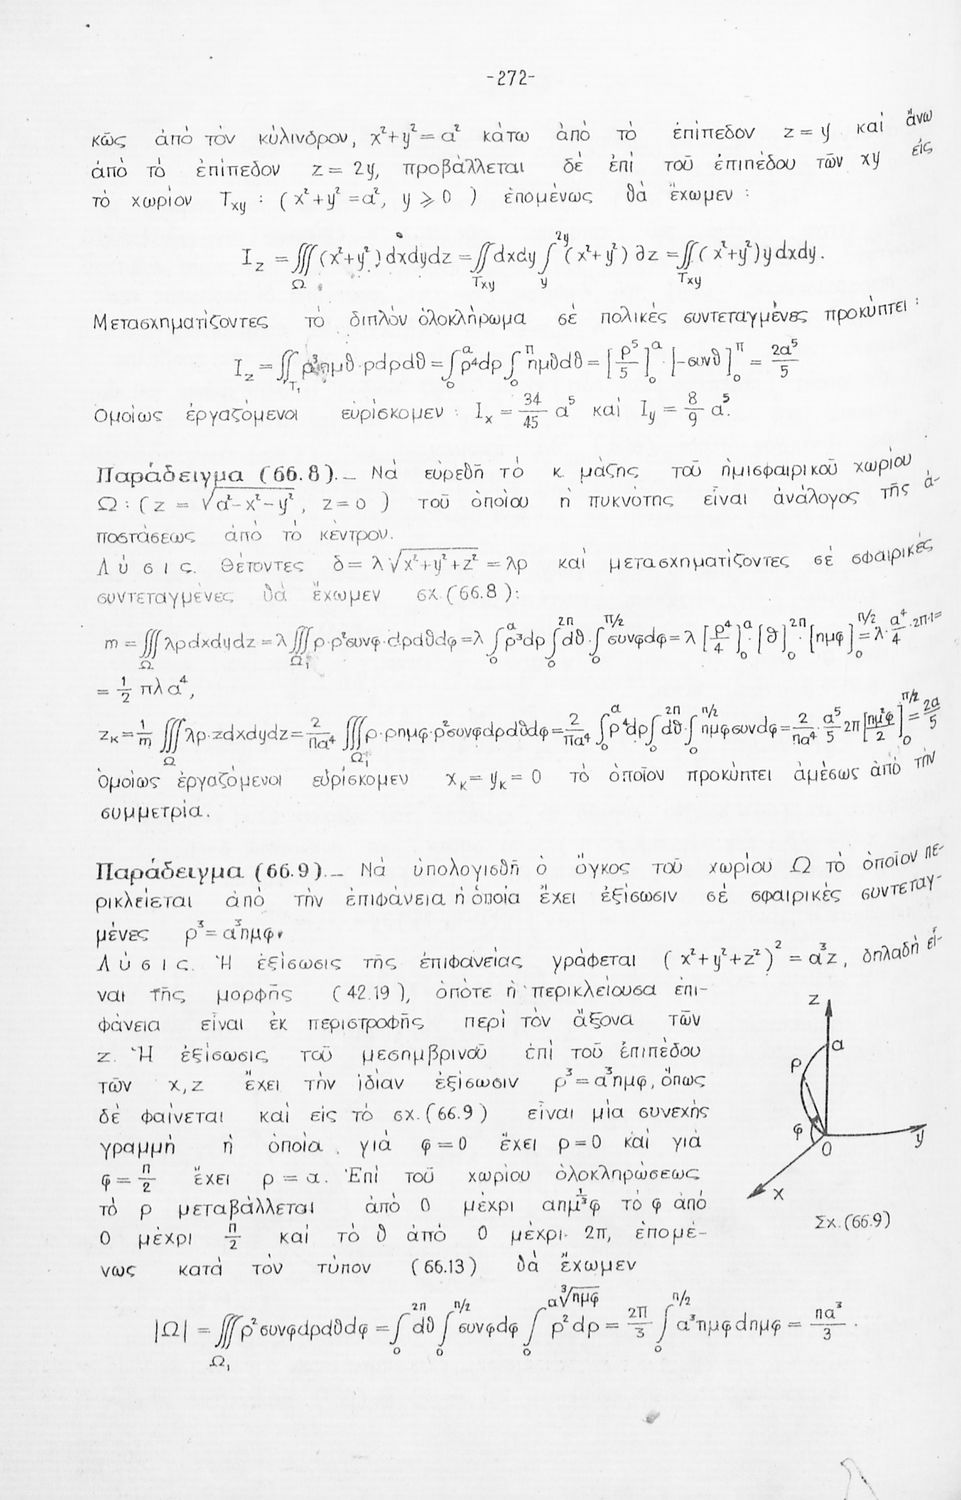 -272-
κῶς ἀπό τόν κύλινδρον, x²+y²=α² κάτω ἀπό τό ἐπίπεδον z = y καί ἄνω
ἀπό τό ἐπίπεδον z = 2y, προβάλλεται δέ ἐπί τοῦ ἐπιπέδου τῶν xy εἰς
τό χωρίον Txy : ( x²+y²=α², y ⩾ 0 ) ἑπομένως θά ἔχωμεν :
I_z = ∭_Ω (x²+y²)dxdydz = ∬_Txy dxdy ∫_y^{2y} (x²+y²) ∂z = ∬_Txy (x²+y²)ydxdy.
Μετασχηματίζοντες τό διπλόν ὁλοκλήρωμα σέ πολικές συντεταγμένες προκύπτει :
I_z = ∬_T₁ ρ³ημθ·ρdρdθ = ∫_0^α ρ⁴dρ ∫_0^π ημθdθ = [ρ⁵/5]_0^α · [-συνθ]_0^π = 2α⁵/5
Ὁμοίως ἐργαζόμενοι εὑρίσκομεν : I_x = 34/45 α⁵ καί I_y = 8/9 α⁵.
Παράδειγμα (66.8)._ Νά εὑρεθῆ τό κ. μάζης τοῦ ἡμισφαιρικοῦ χωρίου
Ω : ( z = √α²-x²-y² , z=0 ) τοῦ ὁποίου ἡ πυκνότης εἶναι ἀνάλογος τῆς ἀ-
ποστάσεως ἀπό τό κέντρον.
Λύσις. Θέτοντες δ = λ√x²+y²+z² = λρ καί μετασχηματίζοντες σέ σφαιρικές
συντεταγμένες θά ἔχωμεν σχ.(66.8):
m = ∭_Ω λρdxdydz = λ∭_Ω₁ ρ·ρ²συνφ·dρdθdφ = λ ∫_0^α ρ³dρ ∫_0^{2π} dθ·∫_0^{π/2} συνφdφ = λ [ρ⁴/4]_0^α·[θ]_0^{2π}·[ημφ]_0^{π/2} = λ·α⁴/4·2π·1=
= 1/2 πλα⁴,
z_κ = 1/m ∭_Ω λρ·zdxdydz = 2/πα⁴ ∭_Ω₁ ρ·ρημφ·ρ²συνφdρdθdφ = 2/πα⁴ ∫_0^α ρ⁴dρ ∫_0^{2π} dθ·∫_0^{π/2} ημφσυνφdφ = 2/πα⁴ · α⁵/5 2π [ημ²φ/2]_0^{π/2} = 2α/5
Ὁμοίως ἐργαζόμενοι εὑρίσκομεν x_κ = y_κ = 0 τό ὁποῖον προκύπτει ἀμέσως ἀπό τήν
συμμετρία.
Παράδειγμα (66.9)._ Νά ὑπολογισθῆ ὁ ὄγκος τοῦ χωρίου Ω τό ὁποῖον πε-
ρικλείεται ἀπό τήν ἐπιφάνεια ἡ ὁποία ἔχει ἐξίσωσιν σέ σφαιρικές συντεταγ-
μένες ρ³=α³ημφ.
Λύσις. Ἡ ἐξίσωσις τῆς ἐπιφανείας γράφεται ( x²+y²+z² )² = α³z, δηλαδή εἶ-
ναι τῆς μορφῆς (42.19), ὁπότε ἡ περικλείουσα ἐπι-
φάνεια εἶναι ἐκ περιστροφῆς περί τόν ἄξονα τῶν
z. Ἡ ἐξίσωσις τοῦ μεσημβρινοῦ ἐπί τοῦ ἐπιπέδου
τῶν x,z ἔχει τήν ἰδίαν ἐξίσωσιν ρ³=α³ημφ, ὅπως
δέ φαίνεται καί εἰς τό σχ.(66.9) εἶναι μία συνεχής
γραμμή ἡ ὁποία, γιά φ=0 ἔχει ρ=0 καί γιά
φ = π/2 ἔχει ρ = α. Ἐπί τοῦ χωρίου ὁλοκληρώσεως
τό ρ μεταβάλλεται ἀπό 0 μέχρι αημ^{1/3}φ τό φ ἀπό
0 μέχρι π/2 καί τό θ ἀπό 0 μέχρι 2π, ἑπομέ-
νως κατά τόν τύπον (66.13) θά ἔχωμεν
|Ω| = ∭_Ω₁ ρ²συνφdρdθdφ = ∫_0^{2π} dθ ∫_0^{π/2} συνφdφ ∫_0^{α∛ημφ} ρ²dρ = 2π/3 ∫_0^{π/2} α³ημφdημφ = πα³/3 .
z
α
ρ
φ
0
y
x
Σχ.(66.9)